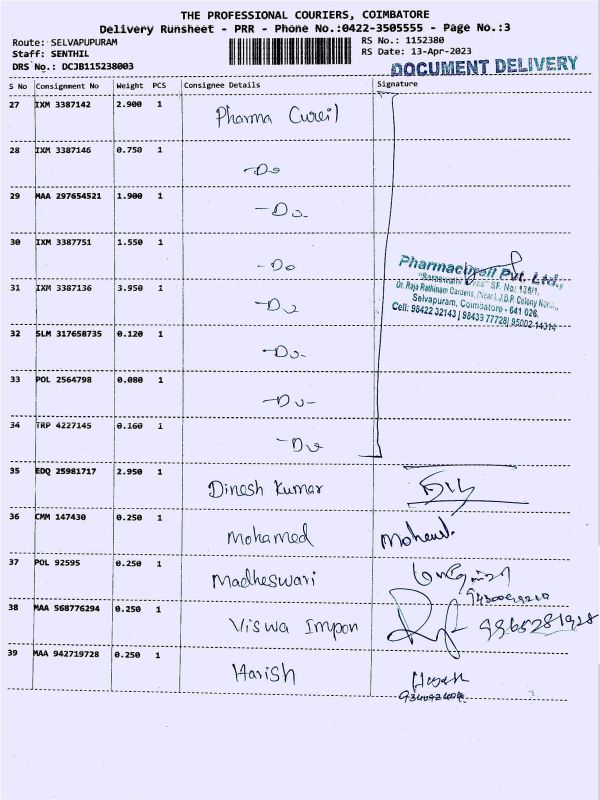 THE PROFESSIONAL COURIERS, COIMBATORE
Delivery Runsheet - PRR - Phone No.:0422-3505555 - Page No.:3
Route: SELVAPUPURAM
RS No.: 1152380
Staff: SENTHIL
RS Date: 13-Apr-2023
DRS No.: DCJB115238003
DOCUMENT DELIVERY
S No Consignment No Weight PCS Consignee Details Signature
27 IXM 3387142 2.900 1 Pharma Cureil
28 IXM 3387146 0.750 1 -Do
29 MAA 297654521 1.900 1 -Do-
30 IXM 3387751 1.550 1 -Do
31 IXM 3387136 3.950 1 -Do
Pharmacureil Pvt. Ltd.,
SF. No: 138/1,
Dr. Raja Rathinam Gardens, (Near) J.D.P. Colony
Selvapuram, Coimbatore - 641 026.
Cell: 98422 32143 | 98439 77728 | 95002 14314
32 SLM 317658735 0.120 1 -Do-
33 POL 2564798 0.080 1 -Do-
34 TRP 4227145 0.160 1 -Do
35 EDQ 25981717 2.950 1 Dinesh Kumar
36 CMM 147430 0.250 1 Mohamed
37 POL 92595 0.250 1 Madheswari
38 MAA 568776294 0.250 1 Viswa Impon 9965281928
39 MAA 942719728 0.250 1 Harish Harish